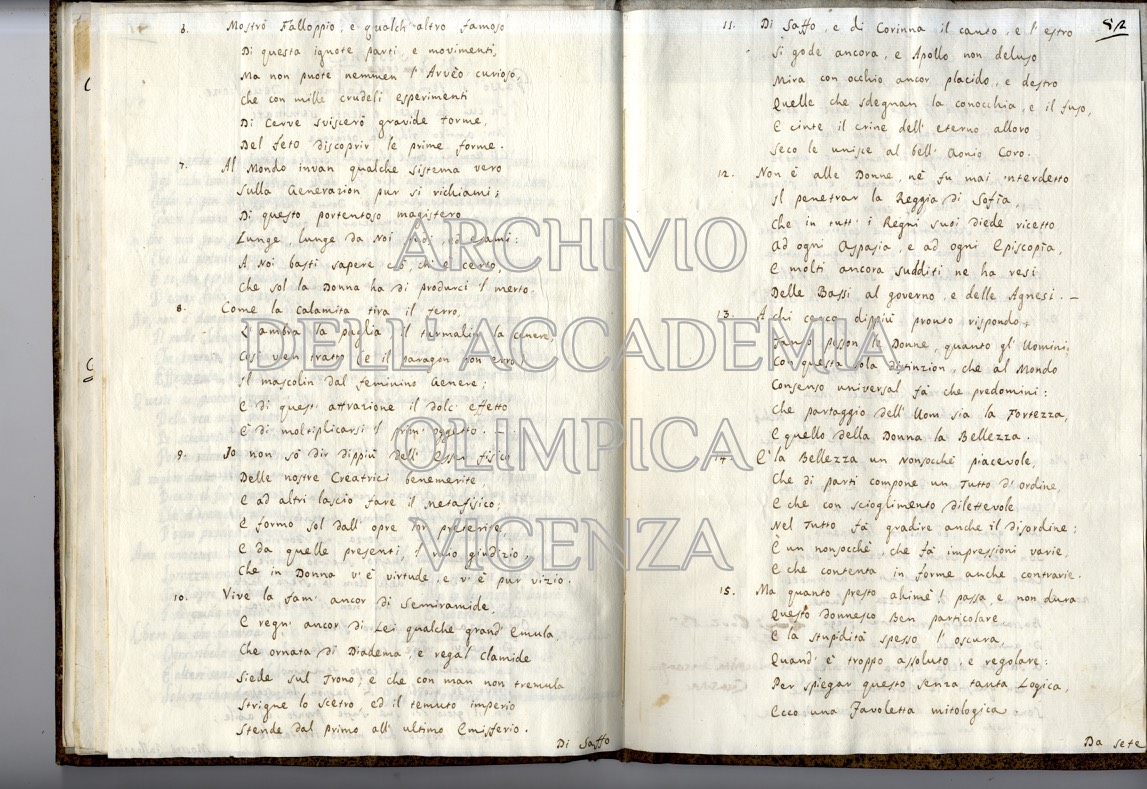 6. Mostrò Falloppio, e qualch' altro famoso
Di questa ignote parti, e movimenti,
Ma non puote nemmen l' Arvèo curioso,
Che con mille crudeli esperimenti
Di Cerve sviscerò gravide torme,
Del feto discoprir le prime forme.
7. Al Mondo invan qualche sistema vero
Sulla Generazion pur si richiami;
Di questo portentoso magistero
Lunge, lunge da Noi ed esami:
A Noi basti sapere ciò, ch' è certo,
Che sol la Donna ha di produrci 'l merto.
8. Come la Calamita tira il ferro,
L' ambra la paglia il turmalin la cenere,
Così vien tratto (e il paragon non erro)
Il mascolin dal feminino Genere;
E di quest' attrazione il dolc' effetto
È di moltiplicarsi 'l prim' oggetto.
9. Io non sò dir dippiù dell' esser fisico
Delle nostre Creatrici benemerite,
E ad altri lascio fare il metafisico;
E formo sol dall' opre lor preterite
E da quelle presenti, 'l mio giudizio,
Che in Donna v' è virtude, e v' è pur vizio.
10. Vive la fam' ancor di Semiramide,
E regn' ancor di Lei qualche grand' Emula,
Che ornata di Diadema, e regal Clamide
Siede sul Trono, e che con man non tremula
Strigne lo scetro, ed il temuto imperio
Stende dal primo all' ultimo Emisferio.
Di Saffo
52
11. Di Saffo, e di Corinna il canto, e l' estro
Si gode ancora, e Apollo non deluso
Mira con occhio ancor placido, e destro
Quelle che sdegnan la conocchia, e il fuso,
E cinte il crine dell' eterno alloro
Seco le unisce al bell' Aonio Coro.
12. Non è alle Donne, nè fu mai interdetto
Il penetrar la Reggia di Sofia,
Che in tutt' i Regni suoi diede ricetto
Ad ogni Aspasia, e ad ogni Episcopia,
E molti ancora sudditi ne ha resi
Delle Bassi al governo, e delle Agnesi. —
13. A chi cerca dippiù pronto rispondo,
Tanto posson le Donne, quanto gl' Uomini,
Con questa sola distinzion, che al Mondo
Consenso universal fà che predomini:
Che partaggio dell' Uom sia la Fortezza,
E quello della Donna la Bellezza.
14. È la Bellezza un Nonsocchè piacevole,
Che di parti compone un Tutto d' ordine,
E che con scioglimento dilettevole
Nel Tutto fà gradire anche il disordine:
È un nonsocchè, che fà impressioni varie,
E che contenta in forme anche contrarie.
15. Ma quanto presto ahimè! passa, e non dura
Questo donnesco Ben particolare
E la stupidità spesso l' oscura,
Quand' è troppo assoluto, e regolare:
Per spiegar questo senza tanta Logica,
Ecco una Favoletta mitologica
Da sete
ARCHIVIO
DELL'ACCADEMIA
OLIMPICA
VICENZA